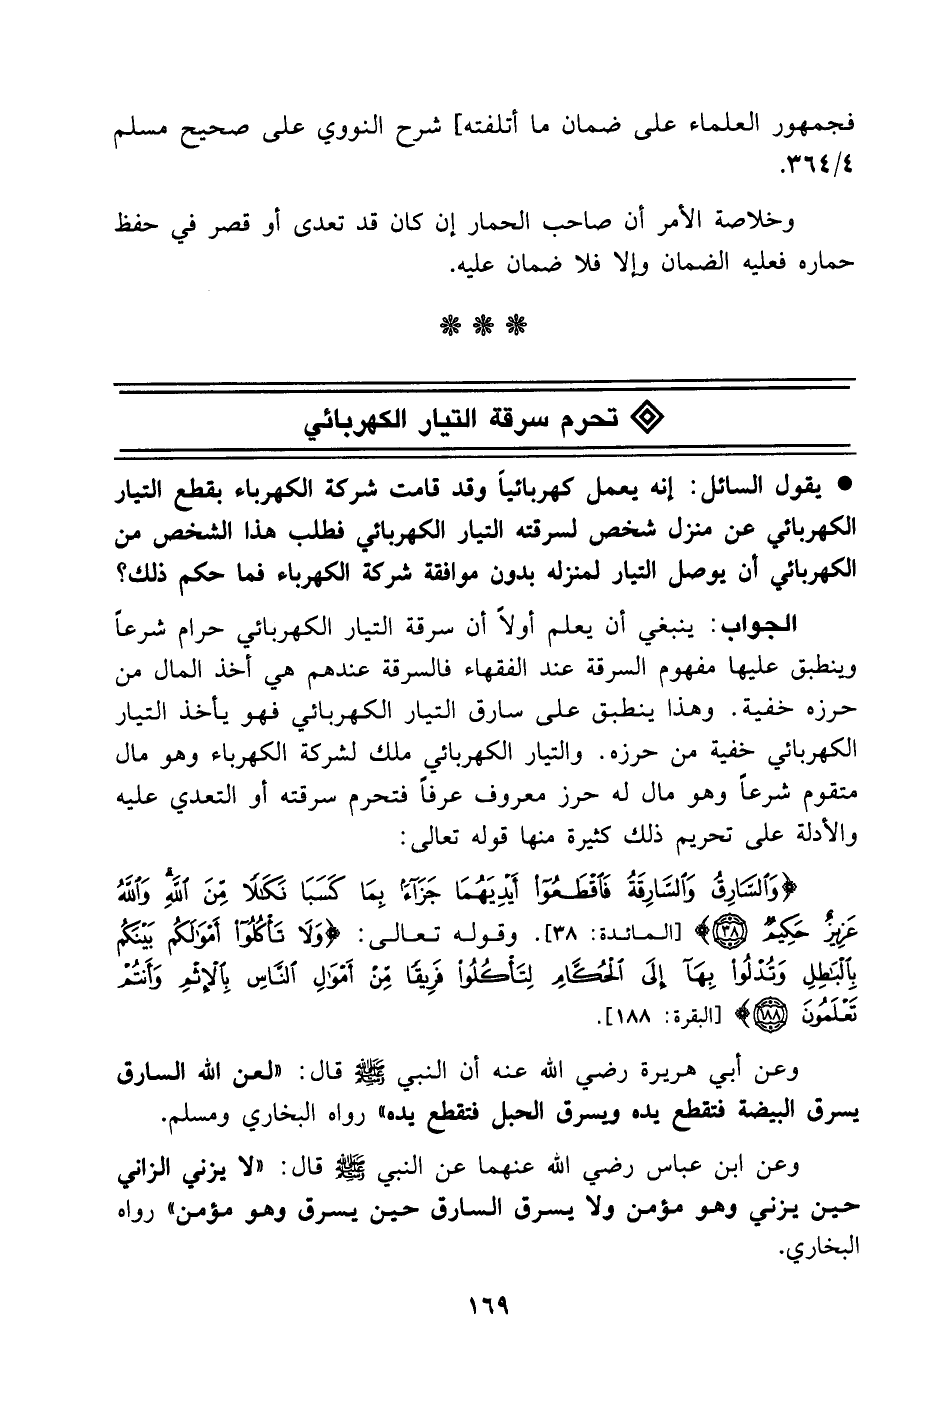 فجمهور العلماء على ضمان ما أتلفته] شرح النووي على صحيح مسلم
٣٦٤/٤.
وخلاصة الأمر أن صاحب الحمار إن كان قد تعدى أو قصر في حفظ
حماره فعليه الضمان وإلا فلا ضمان عليه.
❊ ❊ ❊
تحرم سرقة التيار الكهربائي
● يقول السائل: إنه يعمل كهربائياً وقد قامت شركة الكهرباء بقطع التيار
الكهربائي عن منزل شخص لسرقته التيار الكهربائي فطلب هذا الشخص من
الكهربائي أن يوصل التيار لمنزله بدون موافقة شركة الكهرباء فما حكم ذلك؟
الجواب: ينبغي أن يعلم أولاً أن سرقة التيار الكهربائي حرام شرعاً
وينطبق عليها مفهوم السرقة عند الفقهاء فالسرقة عندهم هي أخذ المال من
حرزه خفية. وهذا ينطبق على سارق التيار الكهربائي فهو يأخذ التيار
الكهربائي خفية من حرزه. والتيار الكهربائي ملك لشركة الكهرباء وهو مال
متقوم شرعاً وهو مال له حرز معروف عرفاً فتحرم سرقته أو التعدي عليه
والأدلة على تحريم ذلك كثيرة منها قوله تعالى:
﴿وَٱلسَّارِقُ وَٱلسَّارِقَةُ فَٱقْطَعُوٓا۟ أَيْدِيَهُمَا جَزَآءًۢ بِمَا كَسَبَا نَكَٰلًا مِّنَ ٱللَّهِ ۗ وَٱللَّهُ
عَزِيزٌ حَكِيمٌ ٣٨﴾ [المائدة: ٣٨]. وقوله تعالى: ﴿وَلَا تَأْكُلُوٓا۟ أَمْوَٰلَكُم بَيْنَكُم
بِٱلْبَٰطِلِ وَتُدْلُوا۟ بِهَآ إِلَى ٱلْحُكَّامِ لِتَأْكُلُوا۟ فَرِيقًا مِّنْ أَمْوَٰلِ ٱلنَّاسِ بِٱلْإِثْمِ وَأَنتُمْ
تَعْلَمُونَ ١٨٨﴾ [البقرة: ١٨٨].
وعن أبي هريرة رضي الله عنه أن النبي ﷺ قال: «لعن الله السارق
يسرق البيضة فتقطع يده ويسرق الحبل فتقطع يده» رواه البخاري ومسلم.
وعن ابن عباس رضي الله عنهما عن النبي ﷺ قال: «لا يزني الزاني
حين يزني وهو مؤمن ولا يسرق السارق حين يسرق وهو مؤمن» رواه
البخاري.
١٦٩